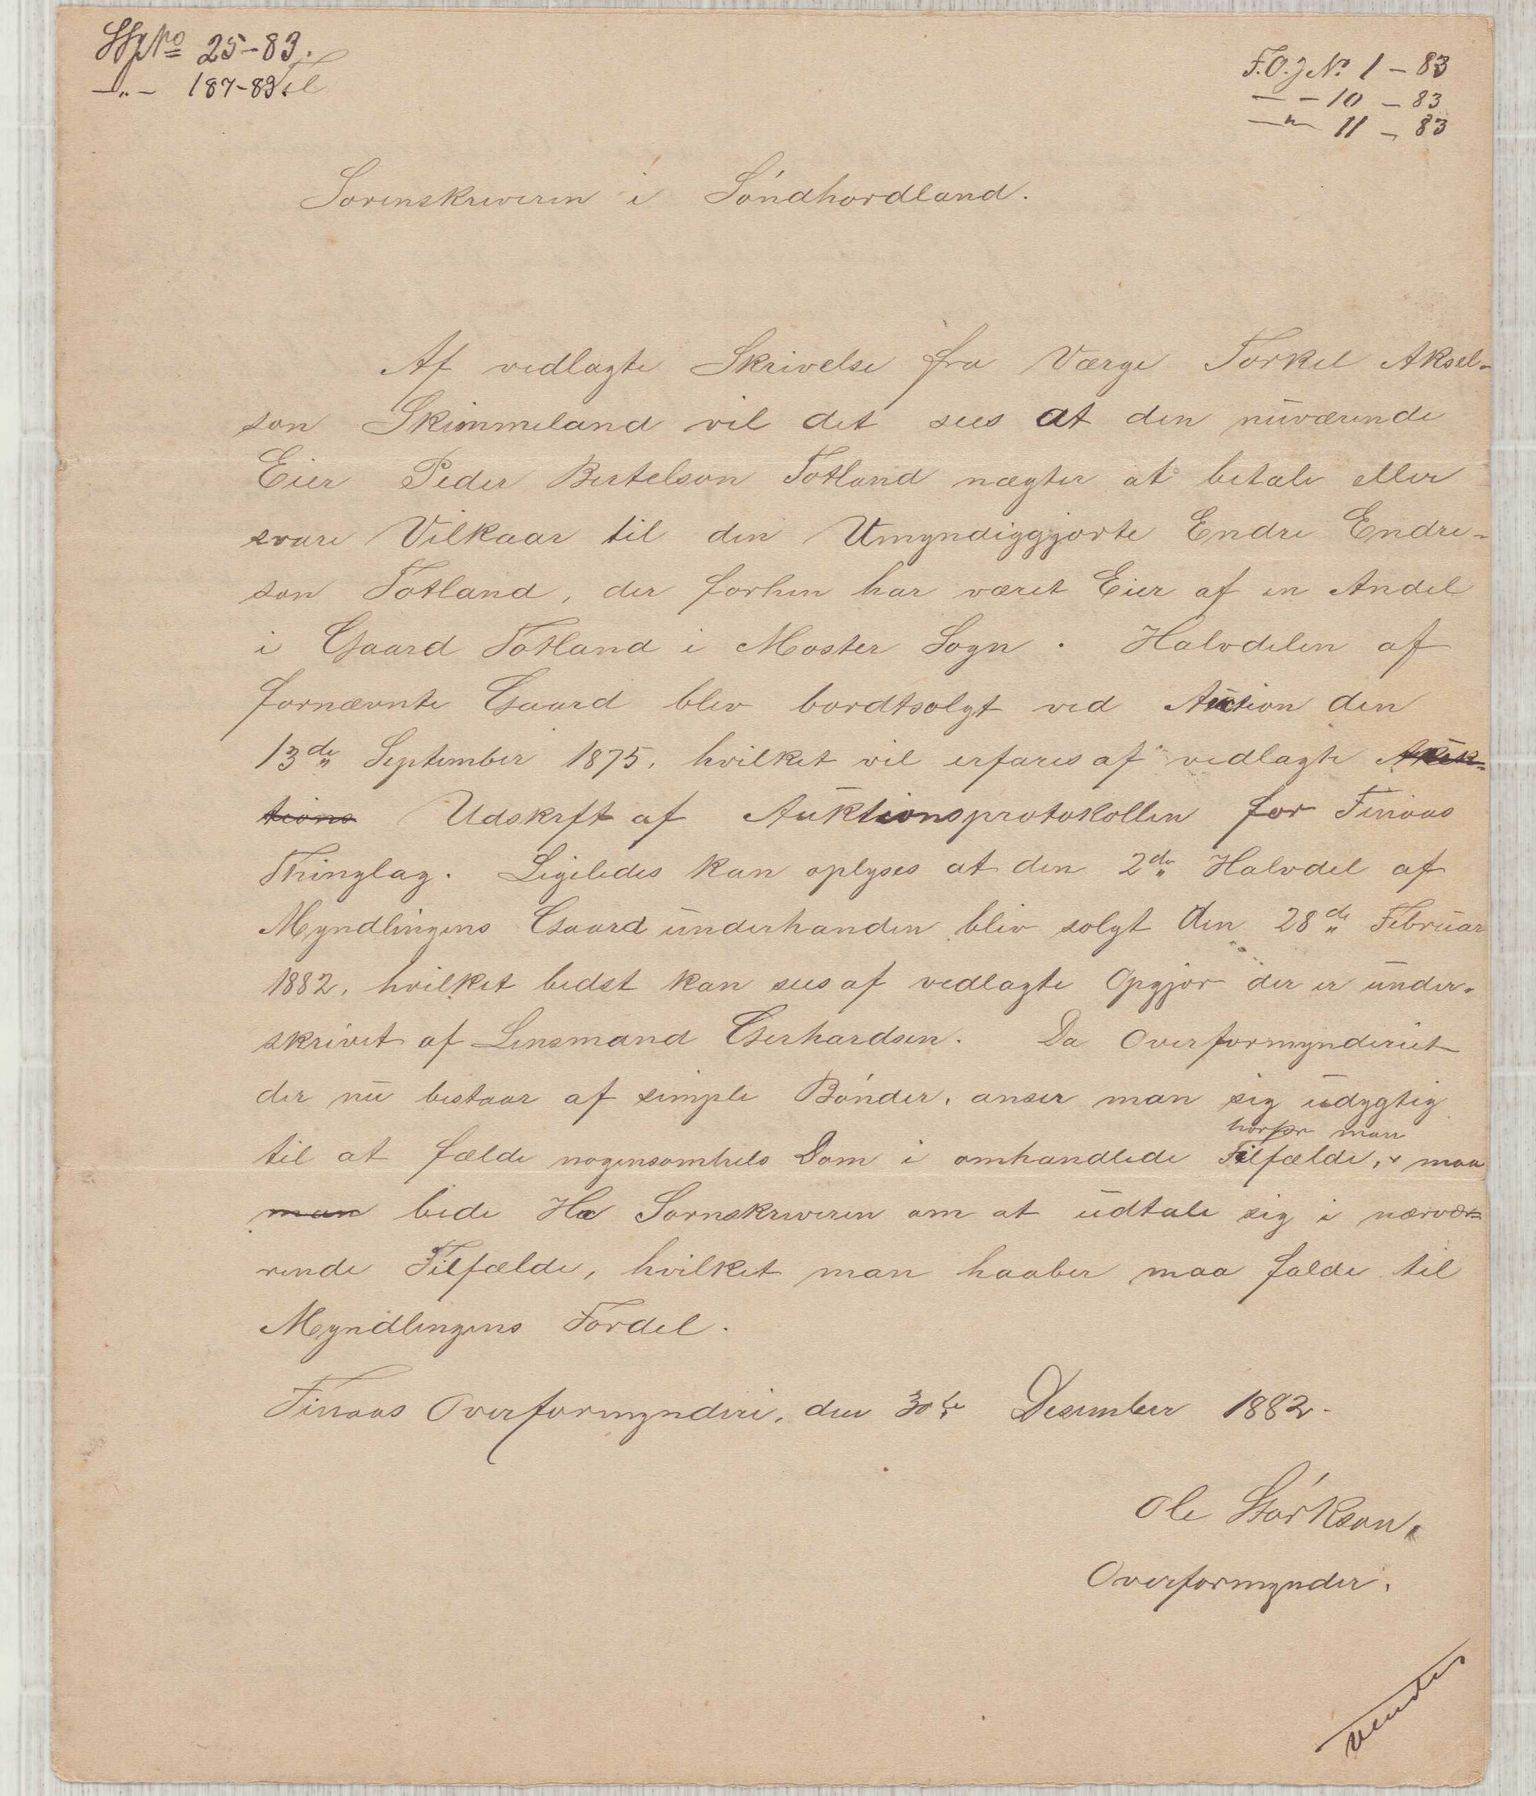 No 25-83.
—"— 187-83. Til
F.O.J No 1 - 83
— - 10 - 83
—"— 11 - 83
Sorenskriveren i Söndhordland.
Af vedlagte Skrivelse fra Værge Torkel Aksel-
son Skimmeland vil det sees at den nuværende
Eier Peder Bertelson Totland nægter at betale eller
svare Vilkaar til den Umyndiggjorte Endre Endre-
son Totland, der forhen har været Eier af en Andel
i Gaard Totland i Moster Sogn. Halvdelen af
fornævnte Gaard blev bortsolgt ved Auction den
13de September 1875, hvilket vil erfares af vedlagte Auk-
tions Udskrft af Auktionsprotokollen for Finaas
Thinglag. Ligeledes kan oplyses at den 2de Halvdel af
Myndlingens Gaard underhanden blev solgt den 28de Februar
1882, hvilket bedst kan sees af vedlagte Opgjør der er under-
skrivet af Lensmand Gerhardsen. Da Overformynderiet
der nu bestaar af simple Bönder, anser man sig udygtig
til at fælde nogensomhels Dom i omhandlede Tilfælde, hvorfor man maa
man bede Hr Sornskriveren om at udtale sig i nærvæ-
rende Tilfælde, hvilket man haaber maa falde til
Myndlingens Fordel.
Finaas Overformynderi, den 30te Desember 1882.
Ole Störkson.
Overformynder.
Vendes